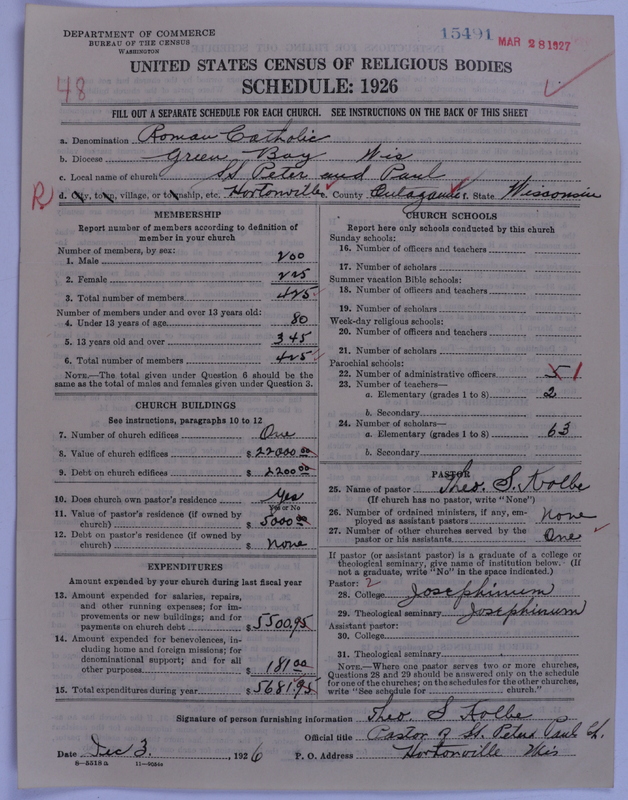 DEPARTMENT OF COMMERCE
BUREAU OF THE CENSUS
WASHINGTON
15491 MAR 28 1927
UNITED STATES CENSUS OF RELIGIOUS BODIES
SCHEDULE: 1926
48
FILL OUT A SEPARATE SCHEDULE FOR EACH CHURCH. SEE INSTRUCTIONS ON THE BACK OF THIS SHEET
a. Denomination Roman Catholic
b. Diocese Green Bay Wis
c. Local name of church SS Peter and Paul
R d. City, town, village, or township, etc. Hortonville e. County Outagamie f. State Wisconsin
MEMBERSHIP
Report number of members according to definition of
member in your church
Number of members, by sex:
1. Male 200
2. Female 225
3. Total number of members 425
Number of members under and over 13 years old:
4. Under 13 years of age 80
5. 13 years old and over 345
6. Total number of members 425
NOTE.—The total given under Question 6 should be
same as the total of males and females given under Question 3.
CHURCH BUILDINGS
See instructions, paragraphs 10 to 12
7. Number of church edifices One
8. Value of church edifices $ 22000 00
9. Debt on church edifices $ 2200 00
10. Does church own pastor's residence Yes
Yes or No
11. Value of pastor's residence (if owned by
church) $ 5000 00
12. Debt on pastor's residence (if owned by
church) $ none
EXPENDITURES
Amount expended by your church during last fiscal year
13. Amount expended for salaries, repairs,
and other running expenses; for im-
provements or new buildings; and for
payments on church debt $ 5500.95
14. Amount expended for benevolences, in-
cluding home and foreign missions; for
denominational support; and for all
other purposes $ 181 00
15. Total expenditures during year $ 5681.95
CHURCH SCHOOLS
Report here only schools conducted by this church
Sunday schools:
16. Number of officers and teachers
17. Number of scholars
Summer vacation Bible schools:
18. Number of officers and teachers
19. Number of scholars
Week-day religious schools:
20. Number of officers and teachers
21. Number of scholars
Parochial schools:
22. Number of administrative officers 1
23. Number of teachers—
a. Elementary (grades 1 to 8) 2
b. Secondary
24. Number of scholars—
a. Elementary (grades 1 to 8) 63
b. Secondary
PASTOR
25. Name of pastor Theo. S. Kolbe
(If church has no pastor, write "None")
26. Number of ordained ministers, if any, em-
ployed as assistant pastors none
27. Number of other churches served by the
pastor or his assistants One
If pastor (or assistant pastor) is a graduate of a college or
theological seminary, give name of institution below. (If
not a graduate, write "No" in the space indicated.)
Pastor: 2
28. College Josephinum
29. Theological seminary Josephinum
Assistant pastor:
30. College
31. Theological seminary
NOTE.—Where one pastor serves two or more churches,
Questions 28 and 29 should be answered only on the schedule
for one of the churches; on the schedules for the other churches,
write "See schedule for church."
Signature of person furnishing information Theo. S Kolbe
Official title Pastor of SS. Peter & Paul Ch.
Date Dec 3, 1926 P. O. Address Hortonville Wis
8—5518a